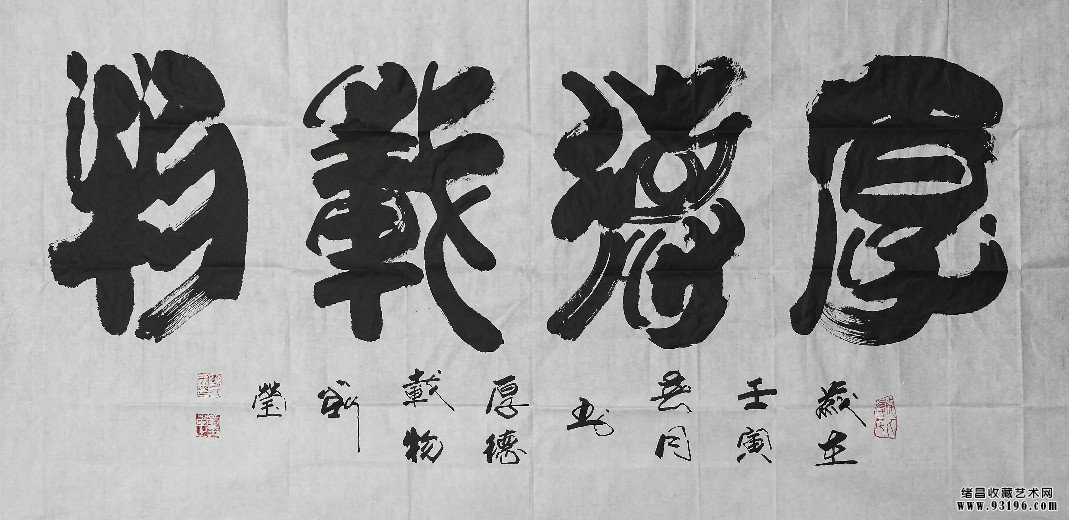 厚德載物
歲在
壬寅
春月
書
厚德
載物
劉
瑩
绪昌收藏艺术网
www.93196.com